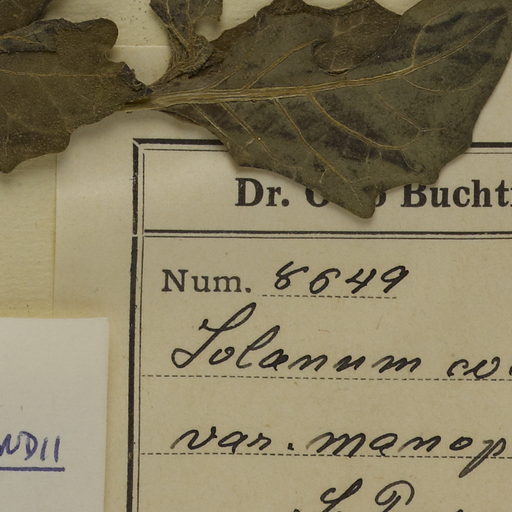 Dr. Buchti
Num. 8649
Solanum
var. manop
NDII